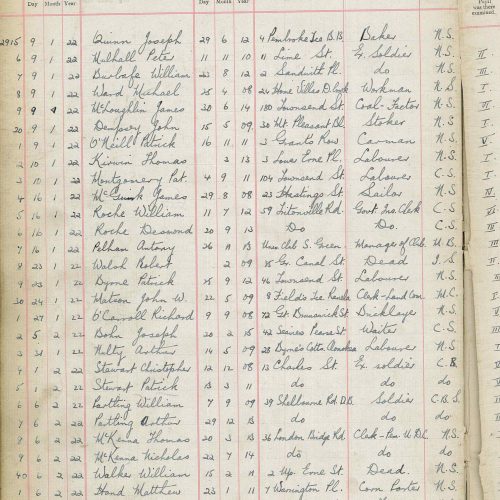 Day Month Year Day Month Year Pupil was there examined
2915 9 1 22 Quinn Joseph 29 6 12 4 Pembroke Tce B.B. Baker N.S.
6 9 1 22 Mulhall Peter 11 11 10 11 Lime St. Ex. Soldier N.S. II
7 9 1 22 William 23 8 12 2 Sandwith Pl. do N.S.
8 9 1 22 Ward Michael 25 4 08 24 Workman N.S.
9 9 1 22 McLoughlin James 30 6 14 180 Townsend St. Coal-Factor N.S.
20 9 1 22 Dempsey John 15 5 09 30 Mt. Pleasant Bl. Stoker N.S.
1 9 1 22 O'Neill Patrick 16 11 11 3 Grants Row Carman N.S. V
2 10 1 22 Kirwin Thomas 2 13 3 Lower Erne Pl. Labourer N.S.
3 10 1 22 Montgomery Pat. 4 9 11 104 Townsend St. Labourer C.S.
4 16 1 22 James 29 8 08 23 Hastings St. Sailor N.S.
5 16 22 Roche William 11 7 12 59 Titonville Rd. Govt. Ins. Clerk C.S.
6 16 22 Roche Desmond 20 9 13 Do Do. C.S.
7 16 1 22 Antony 26 11 13 Club S. Green. Manager of Club. U.B.
8 23 1 22 Walsh Robert 2 09 Gn Canal St. Dead
9 23 22 Byrne Patrick 25 9 12 46 Townsend St. Labourer N.S.
30 24 1 22 Matson John W. 22 5 09 8 Field's Tce Ranela Clerk-Land Com. M.C.
1 27 1 22 O'Carroll Richard 9 9 08 72 Gt. Brunswick St. Bricklayer N.S.
2 5 2 22 Bohn Joseph 20 2 15 42 Pearse St. Waiter C.S.
3 31 1 22 Nulty Arthur 14 5 09 28 Byrne's Cotts Labourer N.S.
4 1 2 22 Stewart Christopher 12 12 08 13 Charles St. Ex. soldier C.B.
5 1 2 22 Stewart Patrick 13 3 11 do do do
6 6 2 22 William 7 9 09 39 Shelbourne Rd. D.B. Soldier C.B.S.
7 6 2 22 Arthur 29 12 13 do do do
8 9 2 22 McKenna Thomas 20 3 13 36 London Bridge Rd. Clerk N.S.
9 6 2 22 McKenna Nicholas 22 7 14 do do do
40 6 2 22 Walker William 15 2 11 2 Up. Erne St. Dead. N.S.
1 6 2 22 Hand Matthew 23 1 11 7 Warrington Pl. Corn Porter N.S.